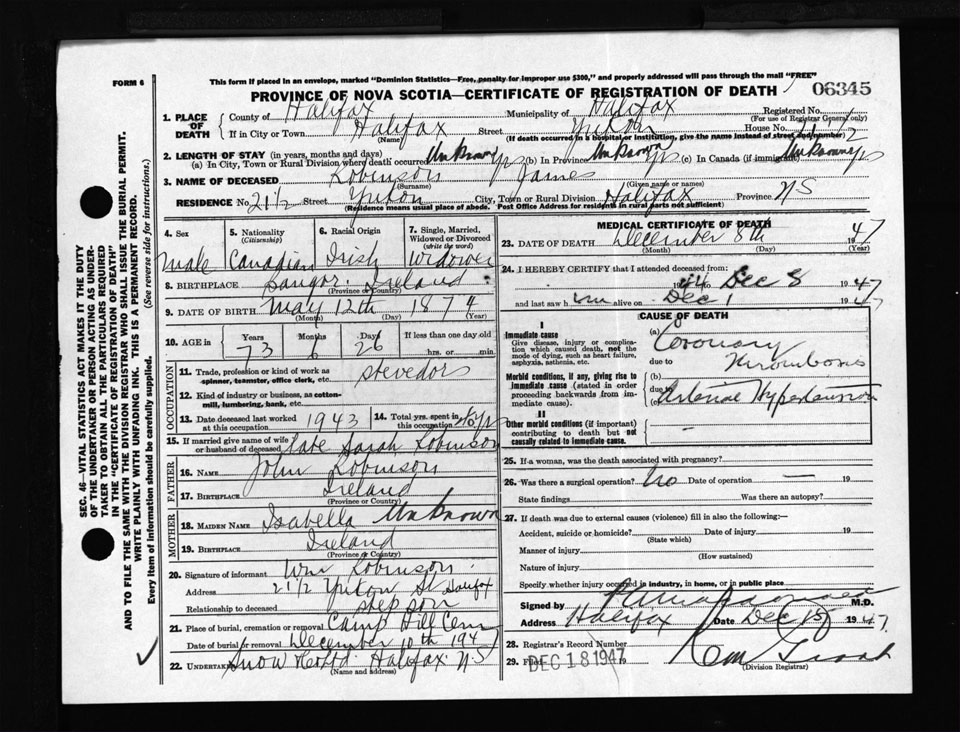 FORM 6
This form if placed in an envelope, marked "Dominion Statistics—Free, penalty for improper use $300," and properly addressed will pass through the mail "FREE"
PROVINCE OF NOVA SCOTIA—CERTIFICATE OF REGISTRATION OF DEATH
06345
1. PLACE OF DEATH
County of Halifax Municipality of Halifax Registered No.
(For use of Registrar General only)
If in City or Town Halifax Street Yukon House No. 21 1/2
(Name) (If death occurred in a hospital or institution, give the name instead of street and number)
2. LENGTH OF STAY (in years, months and days)
(a) In City, Town or Rural Division where death occurred Unknown yrs (b) in Province Unknown yrs (c) in Canada (if immigrant) Unknown yrs
3. NAME OF DECEASED Robinson James
(Surname) (Given name or names)
RESIDENCE No. 21 1/2 Street Yukon City, Town or Rural Division Halifax Province NS
(Residence means usual place of abode. Post Office Address for residents in rural parts not sufficient)
4. Sex
male
5. Nationality
(Citizenship)
Canadian
6. Racial Origin
Irish
7. Single, Married, Widowed or Divorced
(write the word)
Widower
8. BIRTHPLACE Bangor Ireland
(Province or Country)
9. DATE OF BIRTH May 12th 1874
(Month) (Day) (Year)
10. AGE in
Years Months Days If less than one day old
73 6 26 hrs. or min.
OCCUPATION
11. Trade, profession or kind of work as spinner, teamster, office clerk, etc. Stevedore
12. Kind of industry or business, as cotton-mill, lumbering, bank, etc.
13. Date deceased last worked at this occupation 1943
14. Total yrs. spent in this occupation 40 yrs
15. If married give name of wife or husband of deceased Late Sarah Robinson
FATHER
16. NAME John Robinson
17. BIRTHPLACE Ireland
(Province or Country)
MOTHER
18. MAIDEN NAME Isabella Unknown
19. BIRTHPLACE Ireland
(Province or Country)
20. Signature of informant Wm Robinson
Address 21 1/2 Yukon St Halifax
Relationship to deceased step son
21. Place of burial, cremation or removal Camp Hill Cem
Date of burial or removal December 10th 1947
22. Undertaker Snow Halifax NS
(Name and address)
MEDICAL CERTIFICATE OF DEATH
23. DATE OF DEATH December 8th 1947
(Month) (Day) (Year)
24. I HEREBY CERTIFY that I attended deceased from:
1944 Dec 8 1947
and last saw him alive on Dec 1 1947
CAUSE OF DEATH
I
Immediate cause
Give disease, injury or complication which caused death, not the mode of dying, such as heart failure, asphyxia, asthenia, etc.
(a) Coronary Thrombosis
due to
Morbid conditions, if any, giving rise to immediate cause (stated in order proceeding backwards from immediate cause).
(b)
due to
(c) Arterial Hypertension
II
Other morbid conditions (if important) contributing to death but not causally related to immediate cause.
25. If a woman, was the death associated with pregnancy?
26. Was there a surgical operation? No Date of operation — 19
State findings Was there an autopsy?
27. If death was due to external causes (violence) fill in also the following:—
Accident, suicide or homicide? Date of injury 19
(State which)
Manner of injury
(How sustained)
Nature of injury
Specify whether injury occurred in industry, in home, or in public place
Signed by M.D.
Address Halifax Date Dec 15 1947
28. Registrar's Record Number
29. Filed DEC 18 1947
(Division Registrar)
SEC. 46—VITAL STATISTICS ACT MAKES IT THE DUTY
OF THE UNDERTAKER OR PERSON ACTING AS UNDER-
TAKER TO OBTAIN ALL THE PARTICULARS REQUIRED
IN THE "CERTIFICATE OF REGISTRATION OF DEATH"
AND TO FILE THE SAME WITH THE DIVISION REGISTRAR WHO SHALL ISSUE THE BURIAL PERMIT.
WRITE PLAINLY WITH UNFADING INK. THIS IS A PERMANENT RECORD.
Every item of information should be carefully supplied. (See reverse side for instructions.)